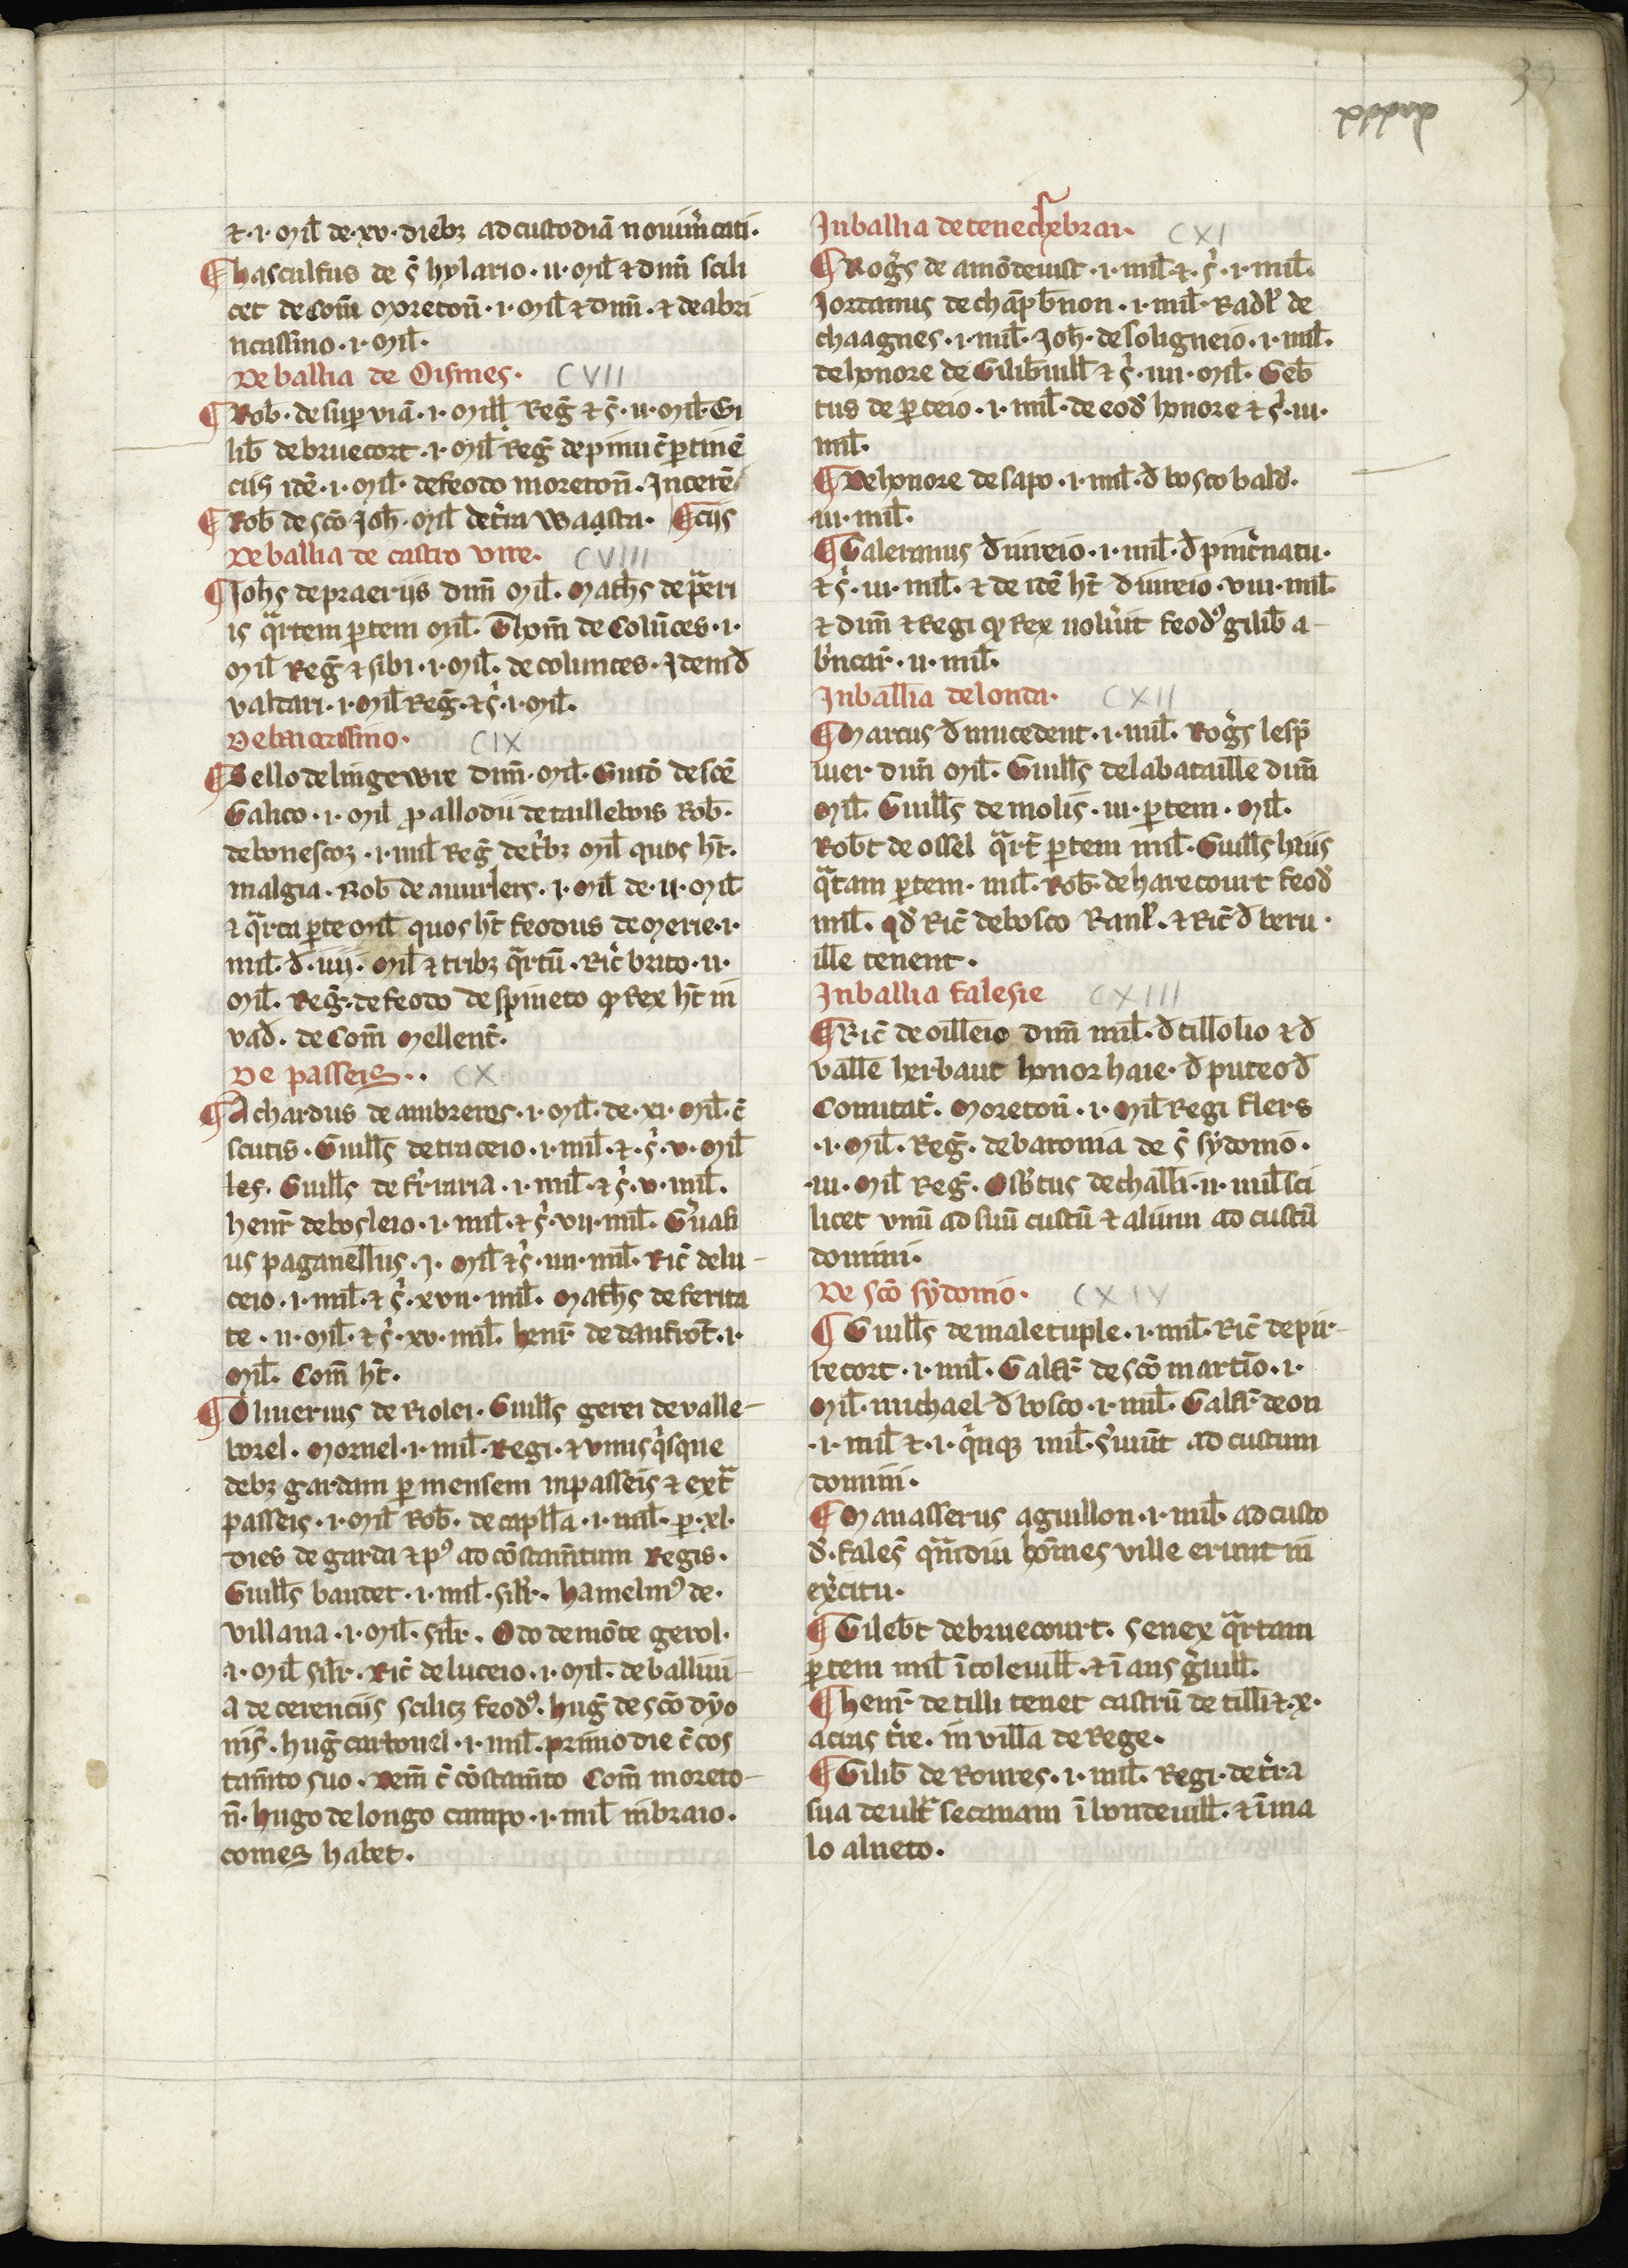 et .i. mil̄ de .xv. diebꝫ ad custodiā novim̄cati.
¶ hasculfus de s̄ hylario .ii. mil̄ et dim̄ scili
cet de Com̄ moreton̄ .i. mil̄ et dim̄. et de abri
ncassino .i. mil̄.
De ballia de Oismes. CVII
¶ Rob̄. de sup̱ viā .i. mill̄ Reḡ et s̄. ii. mil̄. Gi
lib̄ de bruecort .i. mil̄ Reḡ de pinuc̄ p̱tinē
ciis idē .i. mil̄. de feodo moreton̄. In cerē
¶ Rob̄ de sc̄o Joh̄. mil̄ de t̄ra Waasta. ¶ ciis
De ballia de castro vire. CVIII
¶ Joh̄s de praeriis dim̄ mil̄. Math̄s de p̄eri
is q̄rtem p̱tem mil̄. Thom̄ de Colūces .i.
mil̄ Reḡ et sibi .i. mil̄. de colunces. Idem đ
valtari .i. mil̄ Reḡ. et s̄. i. mil̄.
De baiocassino. CIX
¶ Bello de lingewre dim̄. mil̄. Guid̄ de scē
Galico .i. mil̄ ꝓ allodii de taillebois Rob̄.
de bonescoꝫ .i. mil̄ Reḡ de t̄bꝫ mil̄ quos ht̄.
malgia. Rob̄ de auurlers .i. mil̄ de .ii. mil̄
et q̄rta p̱te mil̄ quos ht̄ feodus de merie .i.
mil̄. đ .iiij. mil̄ et tribꝫ q̄rtū. Ric̄ brito .ii.
mil̄. Reḡ. de feodo de spineto qᵈ Rex ht̄ in
vad̄. de Com̄ mellent̄.
De passeis.. CX
¶ Achardus de ambreres .i. mil̄. de .xi. mil̄. c̄
scutis. Guill̄s de traceio .i. mil̄. et s̄. v. mil̄
les. Guill̄s de f̄naria .i. mil̄. et s̄. v. mil̄.
henr̄ de bosleio .i. mil̄. et s̄. vii. mil̄. G̃uasi
us paganellus .i. mil̄ et s̄. iiii. mil̄. Ric̄ de lu-
ceio .i. mil̄. et s̄. xvii. mil̄. Math̄s de ferita
te .ii. mil̄. et s̄. xv. mil̄. henr̄ de danfrōt .i.
mil̄. Com̄ ht̄.
¶ Oliuerius de Riolei. Guill̄s gerei de valle-
borel. Mornel .i. mil̄. Regi. et vnusq̇sque
debꝫ gardam p̱ mensem in passeis et ext̄
passeis .i. mil̄ Rob̄. de capll̄a .i. mil̄. p̱ .xl.
dies de garda et pꝰ ad cōstam̄tum Regis.
Guill̄s baudet .i. mil̄. silr̄. hamelinꝰ de.
villana .i. mil̄. silr̄. Odo de mōte gerol.
.i. mil̄ silr̄. Ric̄ de luceio .i. mil̄. de balliui-
a de cerenciis scilicꝫ feodꝰ. hug̃ de sc̄o dyo
nis̄. hug̃ carbonel .i. mil̄. primo die c̄ cos
tam̄to suo. Dem̄ c̄ cōstam̄to Com̄ moreto-
n̄. hugo de longo campo .i. mil̄ in braio.
comes habet.
In ballia de tenechebrai. CXI
¶ Rog̃s de amōdeuist .i. mil̄ et. s̄. i. mil̄.
Jordanus de chāpb̄non .i. mil̄. Radł de
chaagnes .i. mil̄. Joh̄. de soligneio .i. mil̄.
de honore de Gilib̄uill̄ et s̄. iiii. mil̄. Geb̄
tus de p̱ceio .i. mil̄. de eođ honore et s̄. iii.
mil̄.
¶ De honore de sapo .i. mil̄. đ bosco balđ.
.iii. mil̄.
¶ Galeranus đ iureio .i. mil̄. đ pinc̄natu.
et s̄. iii. mil̄. et de idē ht̄ đ iureio .viii. mil̄.
et dim̄ et Regi qᵈ Rex uolūit feodꝰ gilib̄ a-
b̄ncar̄ .ii. mil̄.
In ballia de londa. CXII
¶ Marcus đ mucedent .i. mil̄. Rog̃s lesp̄
uier dim̄ mil̄. Guill̄s de la bataille dim̄
mil̄. Guill̄s de molis .iii. p̱tem. mil̄.
Rob̄t de ossel q̄rt̄ p̱tem mil̄. Guill̄s haiis
q̄tam p̱tem. mil̄. Rob̄. de harecourt feođ
mil̄. qđ Ric̄ de bosco Ranł. et Ric̄ đ beru.
ille tenent.
In ballia falesie CXIII
¶ Ric̄ de oilleio dim̄ mil̄. đ tillolio et đ
valle herbaut honor haie. đ puteo đ
Comitat̄. moreton̄ .i. mil̄ Regi flers
.i. mil̄. Reḡ. de baronia de s̄ sydonio.
.iii. mil̄ Reḡ. Osb̄tus de challi .ii. mil̄ sci
licet vnū ad suū custū et aliun ad custū
domini.
De sc̄o sydonio. CXIV
¶ Guill̄s de maletuple .i. mil̄. Ric̄ de pir-
recort .i. mil̄. Galfr̄ de sc̄o martīo .i.
mil̄. michael đ bosco .i. mil̄. Galfr̄ de on
.i. mil̄ et .i. q̇nqꝫ mil̄. s̄uiūt ad custum
domini.
¶ Manasserus aguillon .i. mil̄ ad custo
đ. fales̄ qm̄diu hōies ville erunt in
ex̄citu.
¶ Gileb̄t de bruecourt. senex q̄rtam
p̱tem mil̄ ī coleuill̄. et ī ans g̃uill̄.
¶ henr̄ de tilli tenet castrū de tilli et .x.
acras t̄re. in villa de Rege.
¶ Gilib̄ de Roures .i. mil̄. Regi. de t̄ra
sua de ult̄ secanam ī bondeuill̄. et ī ma
lo alneto.